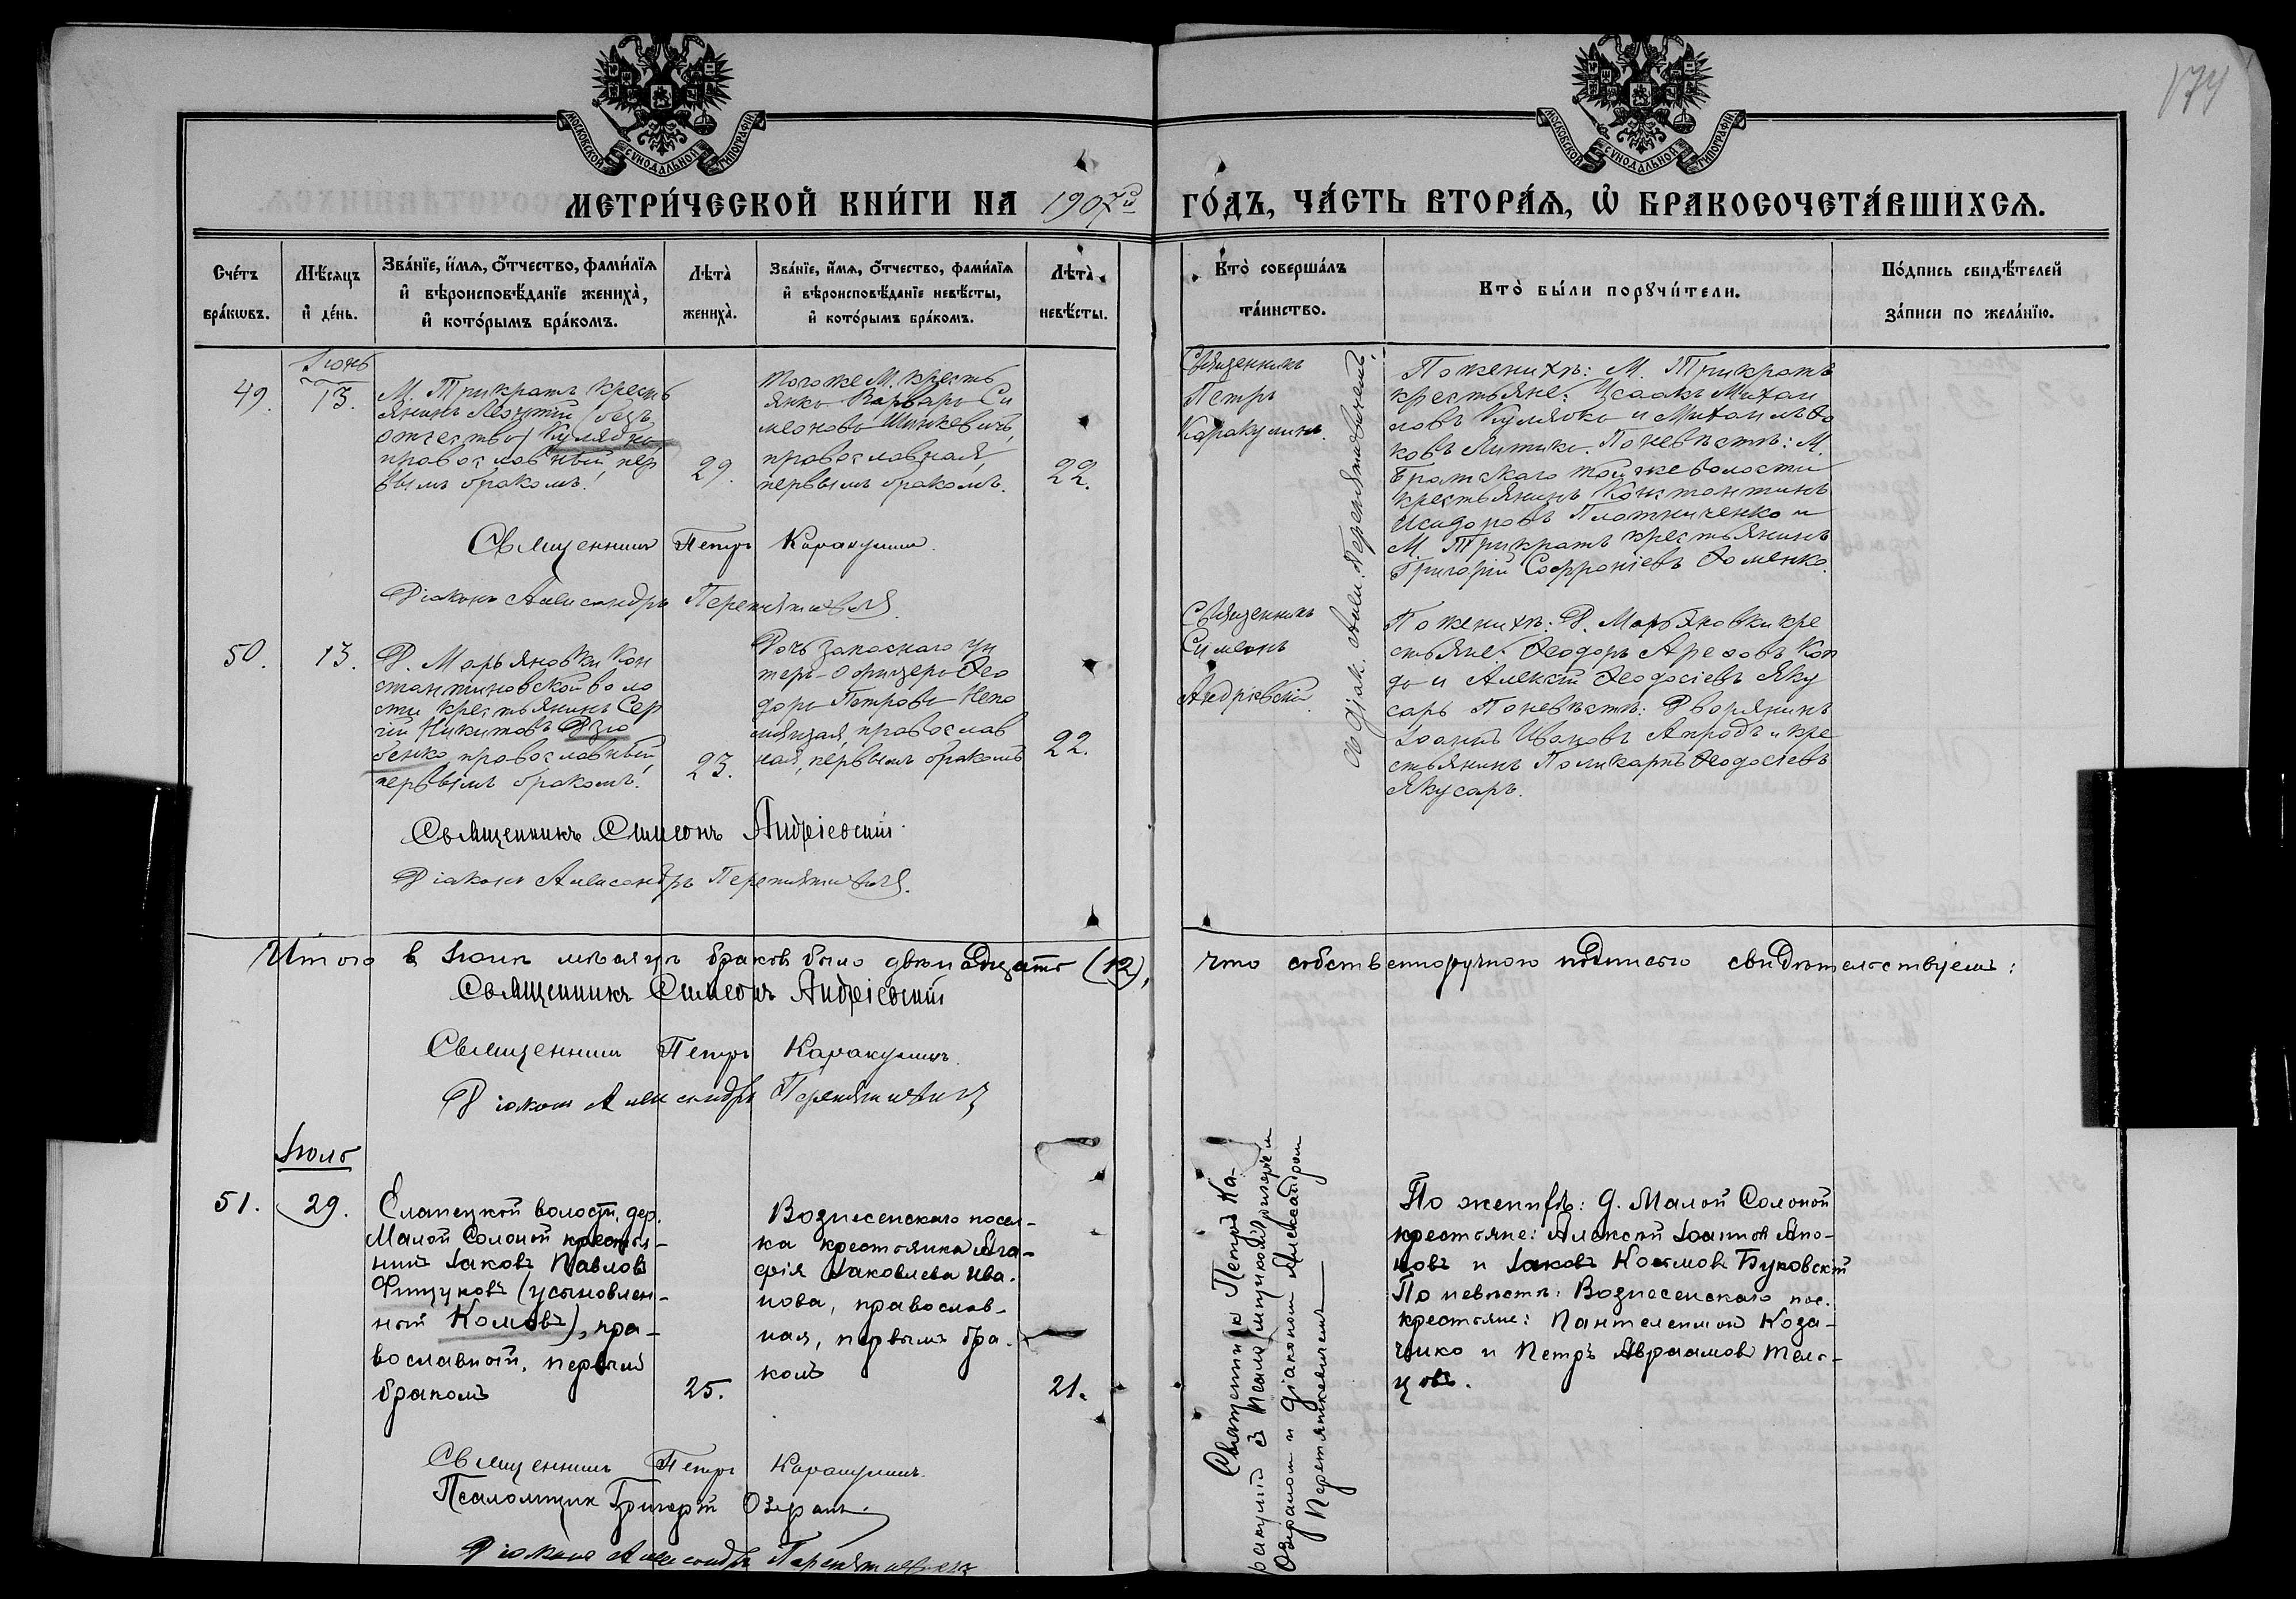 МОСКОВСКОЙ СѴНОДАЛЬНОЙ ТИПОГРАФІИ
МОСКОВСКОЙ СѴНОДАЛЬНОЙ ТИПОГРАФІИ
174
МЕТРИ́ЧЕСКОЙ КНИ́ГИ НА 1907й ГО́ДЪ, ЧА́СТЬ ВТОРА́Ѧ, Ѡ҆ БРАКОСОЧЕТА́ВШИХСѦ.
Сче́тъ
бра́кѡвъ.
Мѣ́сяцъ
и҆ де́нь.
Зва́нїе, и҆́мѧ, ѻ҆́тчество, фами́лїѧ
и҆ вѣроисповѣ́данїе жениха̀,
и҆ кото́рымъ бра́комъ.
Лѣта̀
жениха̀.
Зва́нїе, и҆́мѧ, ѻ҆́тчество, фами́лїѧ
и҆ вѣроисповѣ́данїе невѣ́сты,
и҆ кото́рымъ бра́комъ.
Лѣта̀
невѣ́сты.
Кто̀ соверша́лъ
та́инство.
Кто̀ бы́ли порꙋчи́тели.
По́дпись свидѣ́телей
за́писи по жела́нїю.
Іюнь
49.
13.
М. Трикратъ кресть
янинъ Леонтій (безъ
отчества) Кулябка,
православный, пер
вымъ бракомъ.
29.
Того же М. кресть
янка Варвара Си
меонова Шинкевичъ,
православная,
первымъ бракомъ.
22.
Священникъ
Петръ
Каракулинъ.
съ діак. Перетятковичемъ.
По женихѣ: М. Трикратъ
крестьяне: Исаакъ Михаи
ловъ Кулябка и Михаилъ
По невѣстѣ: М.
Братскаго той же волости
крестьянинъ Константинъ
Исидоровъ Плотниченко и
М. Трикратъ крестьянинъ
Григорій Софроніевъ Хоменко.
Священникъ Петръ Каракулинъ.
Діаконъ Александръ Перетятковичъ.
50.
13.
Д. Марьяновки Кон
стантиновской воло
сти крестьянинъ Сер
гій Никитовъ Дзю
бенко, православный,
первымъ бракомъ.
23.
Дочь запаснаго ун
теръ-офицера Ѳео
дора Петрова Непо
мнящая, православ
ная, первымъ бракомъ
22.
Священникъ
Симеонъ
Андріевскій.
По женихѣ: Д. Марьяновки кре
стьяне: Ѳеодоръ
и Алексій Ѳеодосіевъ Яку
саръ По невѣстѣ: Дворянинъ
Іоаннъ Ивановъ и кре
стьянинъ Поликарпъ Ѳеодосіевъ
Якусаръ.
Священникъ Симеонъ Андріевскій.
Діаконъ Александръ Перетятковичъ.
Итого в Іюнѣ мѣсяцѣ браковъ было двѣнадцать (12), что собственноручною подписью свидѣтельствуемъ:
Священникъ Симеонъ Андріевскій
Священникъ Петръ Каракулинъ.
Діаконъ Александръ Перетятковичъ
Іюль
51.
29.
Еланецкой волости, дер.
Малой Солоной крестья-
нинъ Іаковъ Павловъ
Фищуковъ (усыновлен-
ный Комовъ), пра-
вославный, первымъ
бракомъ
25.
Вознесенскаго посел-
ка крестьянка Ага-
фія Іаковлева Ива-
нова, православ-
ная, первымъ бра-
комъ
21.
Священникъ Петръ Ка-
ракулинъ съ Псаломщикомъ Григоріемъ
Озераномъ и діакономъ Александромъ
Перетятковичемъ
По женихѣ: д. Малой Солоной
крестьяне: Алексій Іоанновъ
и Іаковъ Космовъ Буковскій
По невѣстѣ: Вознесенскаго пос.
крестьяне: Пантелеимонъ Коза-
чко и Петръ Авраамовъ
Священникъ Петръ Каракулинъ.
Псаломщик Григорій Озеранъ.
Діаконъ Александръ Перетятковичъ